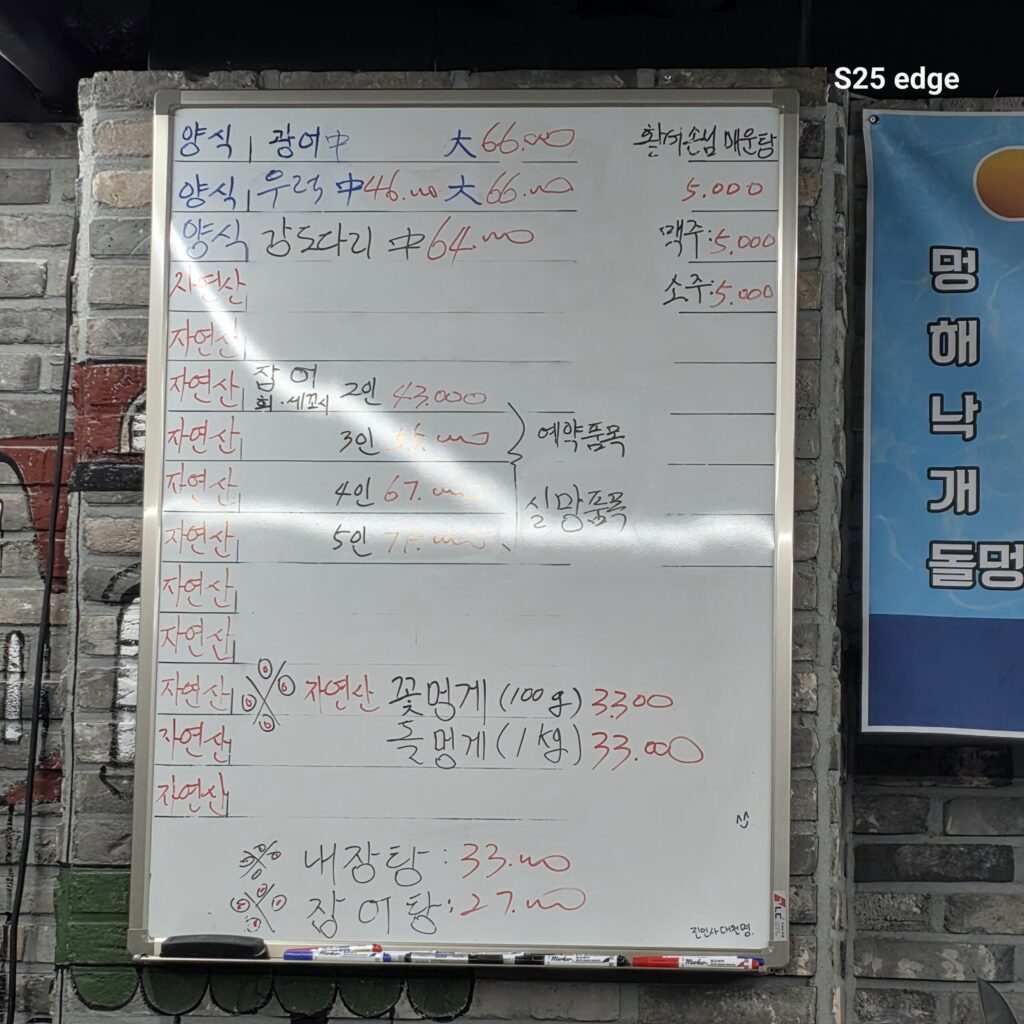 S25 edge
양식 광어 中 大 66.000
활어손님 매운탕
양식 우럭 中 46.000 大 66.000
5.000
양식 강도다리 中 64.000
맥주:5.000
자연산
소주:5.000
자연산
자연산 잠어 2인 43.000
회·세꼬시
자연산 3인 55.000
예약품목
자연산 4인 67.000
실망품목
자연산 5인
자연산
자연산
자연산 ※ 자연산 꽃멍게 (100g) 3300
자연산 돌멍게 (1kg) 33.000
자연산
※ 내장탕:33.000
※ 잠어탕:27.000
진인사대천명.
Marker
Marker
Marker
LC
멍
해
낙
개
돌멍